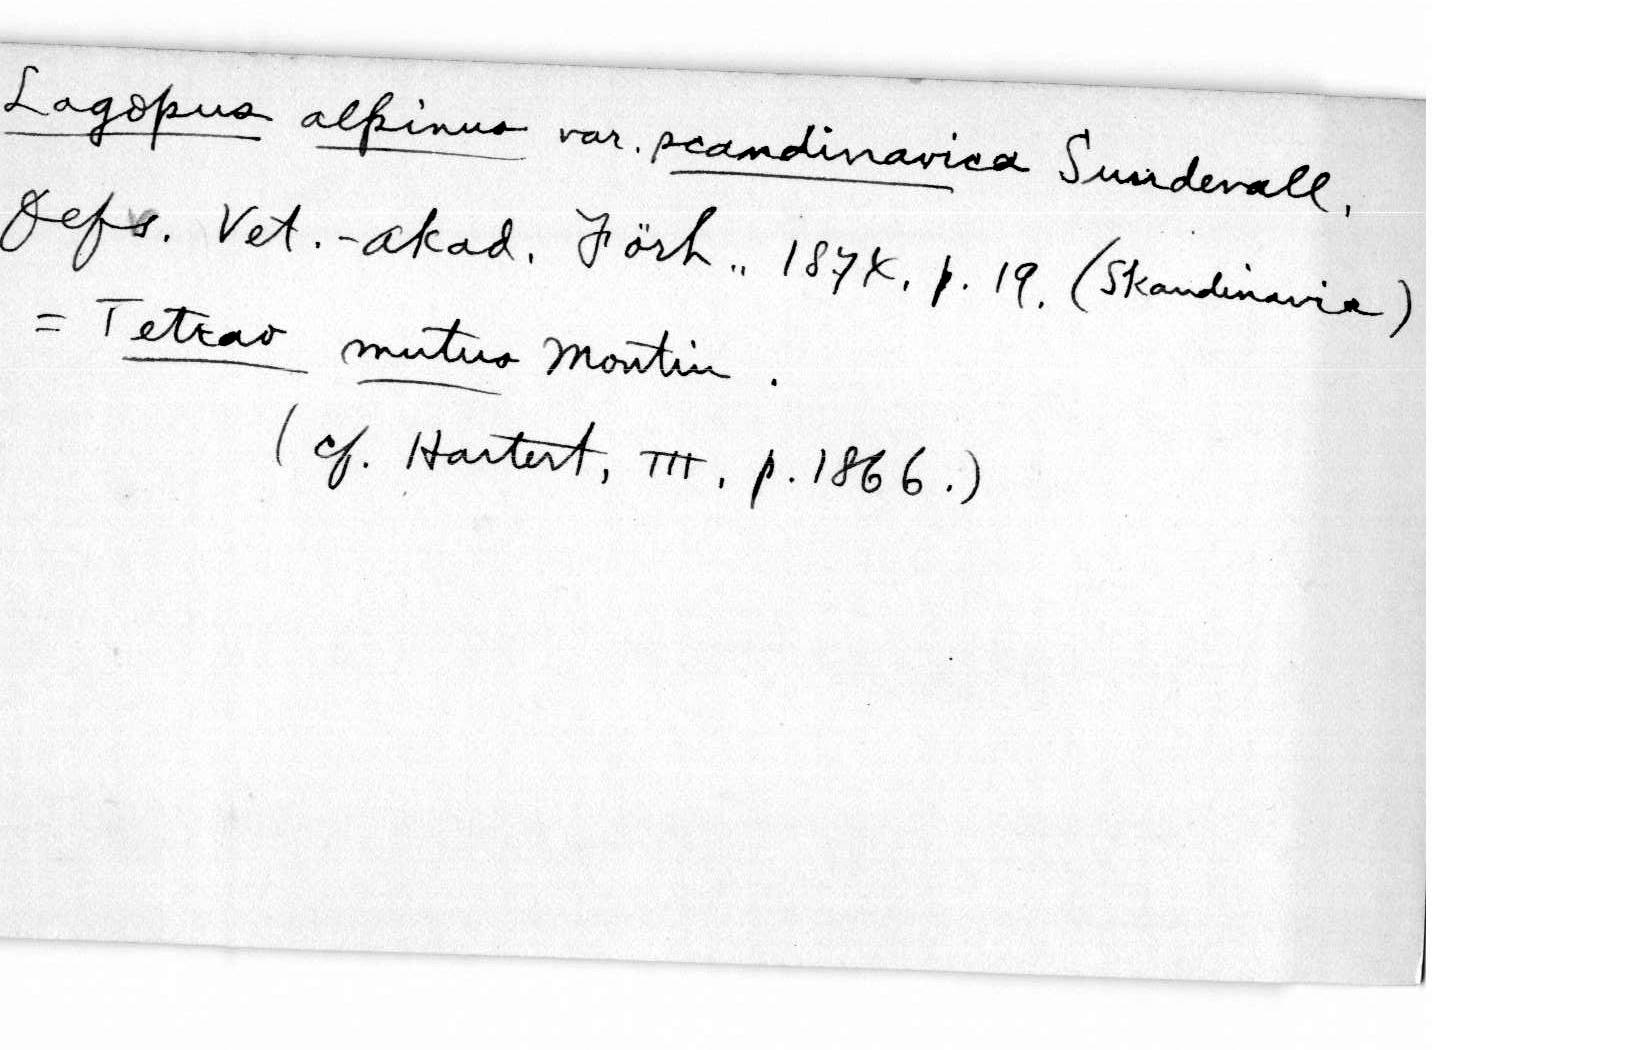 Lagopus alpinus var. scandinavica Sundevall,
Oefs. Vet.-akad. Förh., 1874, p. 19. (Skandinavia)
= Tetrao mutus Montin.
(cf. Hartert, III, p. 1866.)